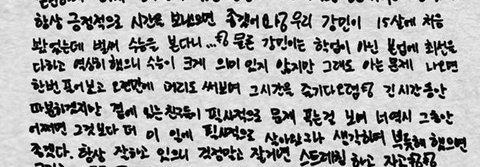 항상 긍정적으로 시간을 보냈으면 좋겠어요! 우리 강민이 15살에 처음
봤었는데 벌써 수능을 본다니...! 물론 강민이는 학업이 아닌 본업에 최선을
다하고 열심히 했으니 수능이 크게 의미 있지 않지만 그래도 아는 문제 나오면
한번 풀어보고 오랜만에 머리도 써보며 그시간을 즐기다오렴 긴 시간동안
따분하겠지만 곁에 있는 친구들이 필사적으로 문제 푸는걸 보며 너 역시 그동안
어쩌면 그것보다 더 이 일에 필사적으로 살아왔구나 생각하며 뿌듯해 했으면
좋겠다. 항상 잘하고 있으니 걱정말고 잘게면 스트레칭 하고 자